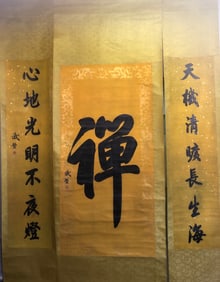 天機清曠長生海
禪
心地光明不夜燈